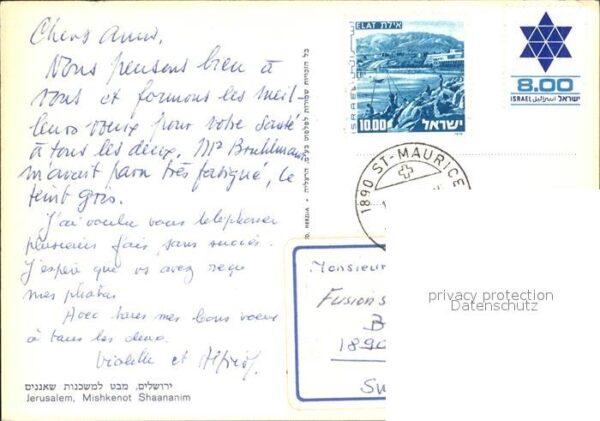 Chers Amis,
Nous pensons bien à
vous et formons les meil-
leurs voeux pour votre santé
à tous les deux, Mr Bruhlmann
m'avait paru très fatigué, le
teint gris.
J'ai voulu vous telephoner
plusieurs fois, sans succès.
J'espère que vs avez reçu
mes photos
Avec tous mes bons voeux
à tous les deux.
Violette et
ירושלים, מבט למשכנות שאננים
Jerusalem, Mishkenot Shaananim
HERZLIA
ELAT אילת
ISRAEL
10.00 ישראל
8.00
ISRAEL اسرائيل ישראל
1890 ST-MAURICE
Monsieur
Fusions
B
1890
Su
privacy protection
Datenschutz